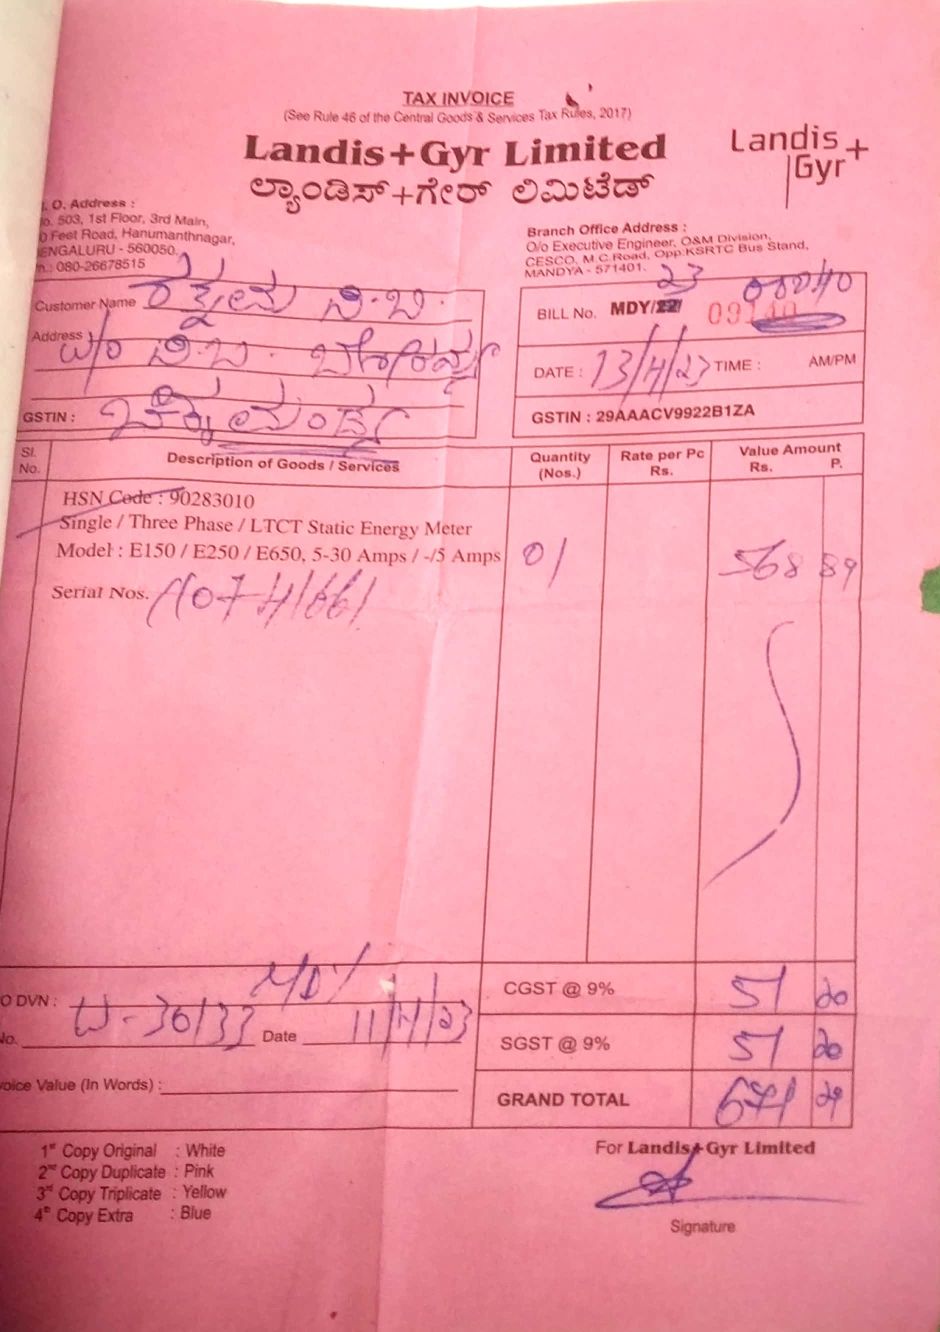 TAX INVOICE
(See Rule 46 of the Central Goods & Services Tax Rules, 2017)
Landis+Gyr Limited
ಲ್ಯಾಂಡಿಸ್+ಗೇರ್ ಲಿಮಿಟೆಡ್
Landis+
Gyr
. O. Address :
o. 503, 1st Floor, 3rd Main,
0 Feet Road, Hanumanthnagar,
ENGALURU - 560050.
n.: 080-26678515
Branch Office Address :
O/o Executive Engineer, O&M Division,
CESCO, M.C.Road, Opp:KSRTC Bus Stand,
MANDYA - 571401.
Customer Name
Address W/o ವಿ.ಬಿ.
GSTIN :
BILL No. MDY/22/ 23
DATE : 13/4/23 TIME : AM/PM
GSTIN : 29AAACV9922B1ZA
Sl. No. Description of Goods / Services Quantity (Nos.) Rate per Pc Rs. Value Amount Rs. P.
HSN Code : 90283010
Single / Three Phase / LTCT Static Energy Meter
Model : E150 / E250 / E650, 5-30 Amps / -/5 Amps 01 568 89
Serial Nos.
O DVN : MDY
No. W-36133 Date 11/4/23
CGST @ 9% 51 20
SGST @ 9% 51 20
voice Value (In Words) :
GRAND TOTAL 671 29
1st Copy Original : White
2nd Copy Duplicate : Pink
3rd Copy Triplicate : Yellow
4th Copy Extra : Blue
For Landis+Gyr Limited
Signature